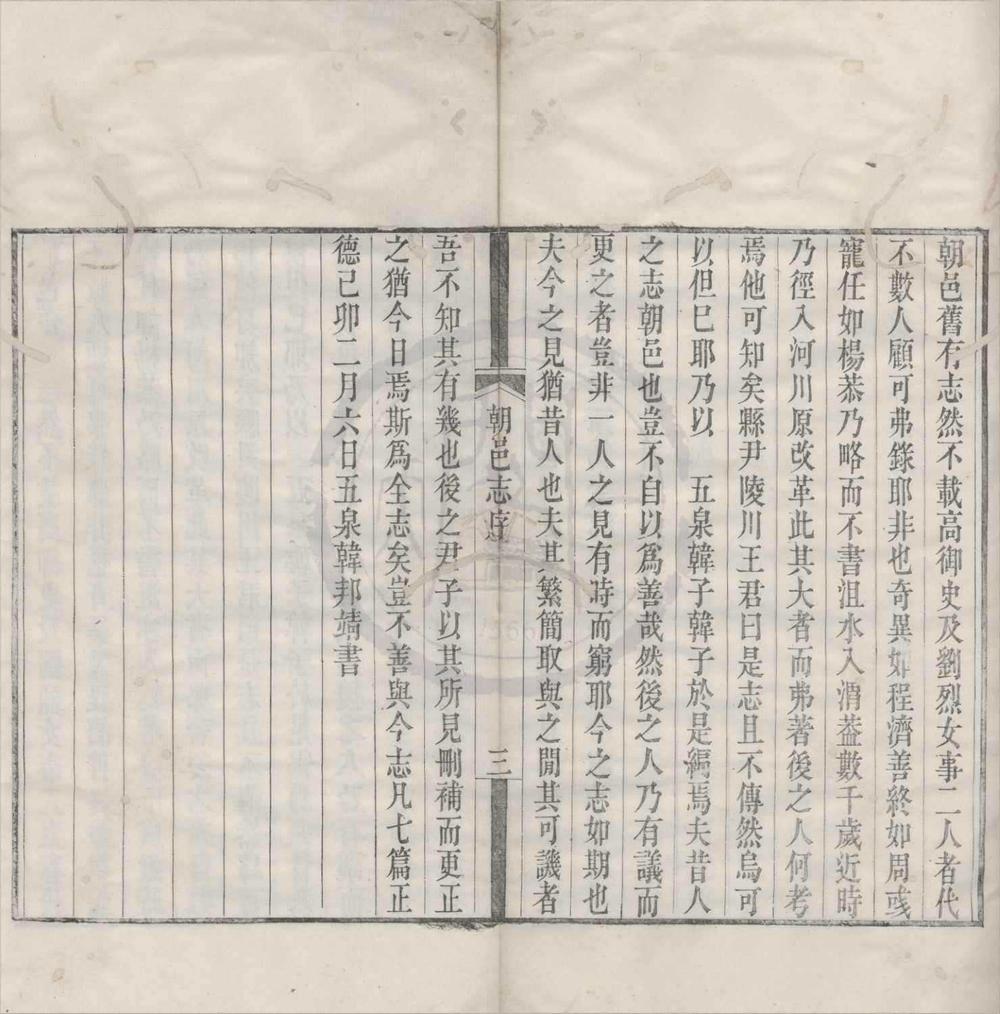 朝邑舊有志然不載高御史及劉烈女事二人者代
不數人顧可弗錄耶非也奇異如程濟善終如周彧
寵任如楊恭乃略而不書沮水入渭益數千歲近時
乃徑入河川原改革此其大者而弗著後之人何考
焉他可知矣縣尹陵川王君曰是志且不傳然烏可
以但巳耶乃以　五泉韓子韓子於是編焉夫昔人
之志朝邑也豈不自以爲善哉然後之人乃有議而
更之者豈非一人之見有時而窮耶今之志如期也
夫今之見猶昔人也夫其繁簡取與之閒其可譏者
朝邑志序
三
吾不知其有幾也後之君子以其所見刪補而更正
之猶今日焉斯爲全志矣豈不善與今志凡七篇正
德己卯二月六日五泉韓邦靖書